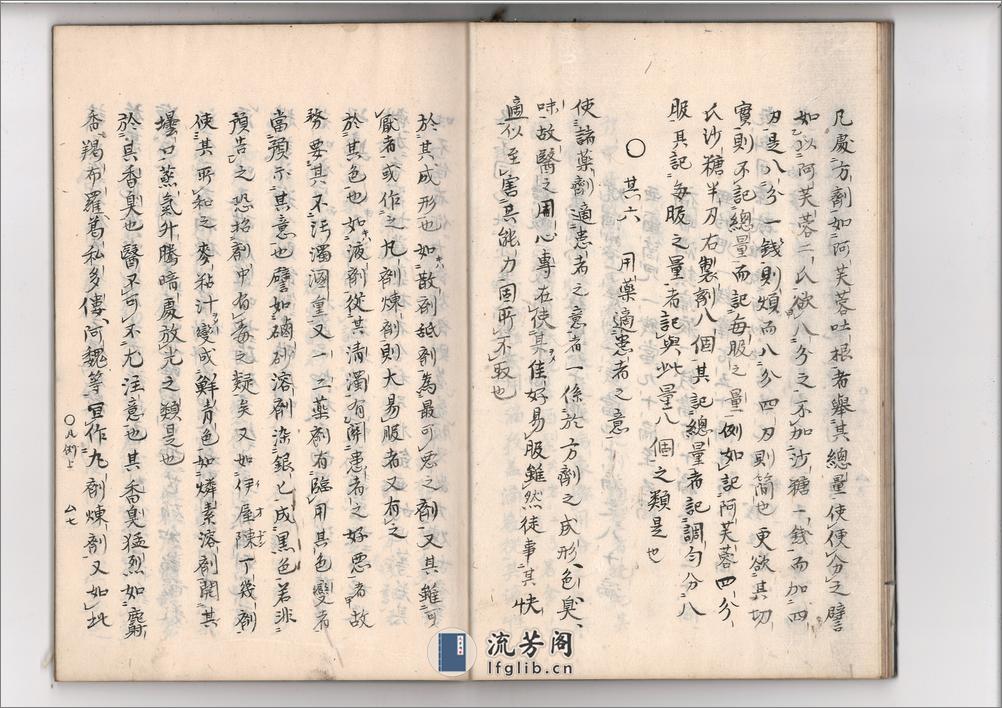 凡處方劑如阿芙蓉吐根者舉其總量使便分之譬
如以阿芙蓉二氏欲八分之不加沙糖一錢而加四
刃是八分一錢則煩而八分四刃則簡也更欲其切
實則不記總量而記每服之量例如記阿芙蓉四分
氏沙糖半刃右製劑八個其記總量者記調勻分八
服其記每服之量者記與此量八個之類是也
○ 其六 用藥適患者之意
使諸藥劑適患者之意者一係於方劑之成形色臭
味故醫之用心專在使其佳好易服雖然徒事其快
適以至害其能力固所不取也
於其成形也如散劑舐劑為最可惡之劑又其難可
厭者或作之丸劑煉劑則大易服者又有之
於其色也如液劑從其清濁有關患者之好惡者故
務要其不污濁溷皇又一二藥劑有臨用其色變者
當預示其意也譬如硇砂溶劑染銀匕成黑色若非
預告之恐招劑中有毒之疑矣又如伊屋陳丁幾劑
使其所和之麥粘汁變成鮮青色如燐素溶劑開其
壜口蒸氣升騰暗處放光之類是也
於其香臭也醫不可不尤注意也其香臭猛烈如麝
香羯布羅葛私多僂阿魏等宜作丸劑煉劑又如此
○凡例上 厶七
流芳阁
lfglib.cn